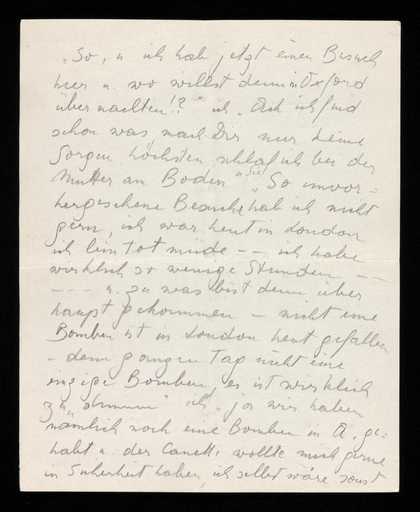 "So, u ich hab jetzt einen Besuch
hier u. wo willst denn in Oxford
übernachten!?" ich "Ach ich find
schon was mach Dir nur keine
Sorgen höchsten schlaf ich bei der
Mutter am Boden" sie "So unvor=
hergesehene Besuche hab ich nicht
gern, ich war heut in London
ich bin tot müde -- ich habe
wirklich so wenige Stunden --
--- u. zu was bist denn über
haupt gekommen - nicht eine
Bomben ist in London heut gefallen
- dem ganzen Tag nicht eine
einzige Bomben, es ist wirklich
zu "dumm" ich "ja wir haben
nämlich noch eine Bomben in A. ge=
habt u. der Canetti wollte mich gerne
in Sicherheit haben, ich selbst wäre sonst